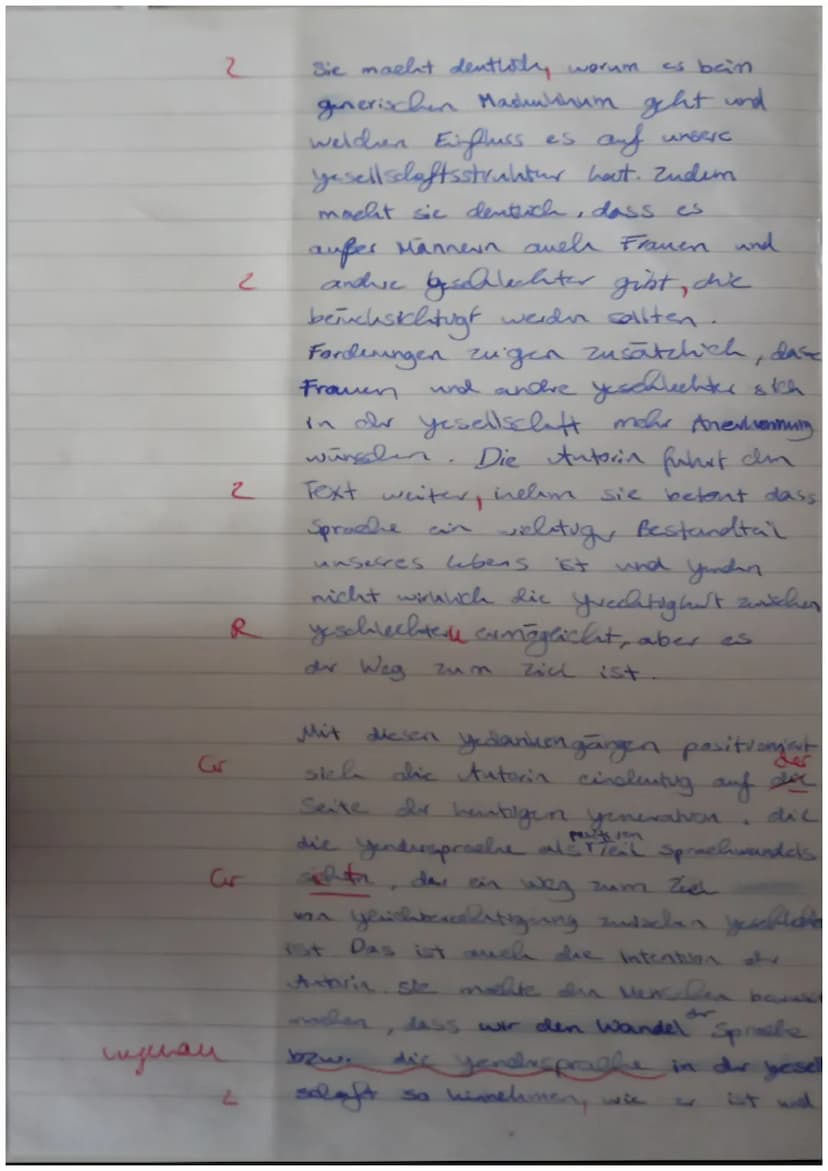 Z Sie macht deutlich, worum es beim
generischen Maskulinum geht und
welchen Einfluss es auf unsere
gesellschaftsstruktur hat. Zudem
macht sie deutlich, dass es
außer Männern auch Frauen und
Z andre geschlechter gibt, die
berücksichtigt werden sollten.
Forderungen zeigen zusätzlich, dass
Frauen und andre geschlechter sich
in der gesellschaft mehr Anerkennung
wünschen. Die Autorin führt den
Z Text weiter, indem sie betont dass
Sprache ein wichtiger Bestandteil
unseres lebens ist und gendern
nicht wirklich die gerechtigkeit zwischen
R geschlechtern ermöglicht, aber es
der Weg zum Ziel ist.
Mit diesen gedankengängen positioniert
der
Gr sich die Autorin eindeutig auf die
Seite der heutigen generation, die
die gendersprache als Teil Sprachwandels
Gr sehen, der ein Weg zum Ziel
von gleichberechtigung zwischen
ist Das ist auch die Intention der
Autorin sie möchte den Menschen
machen, dass wir den Wandel der Sprache
ungenau bzw. die gendersprache in der gesell
Z schaft so hinnehmen, wie er ist und